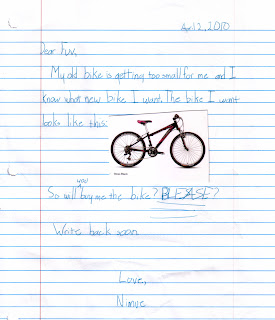 April 2, 2010
Dear
My old bike is getting too small for me and I
know what new bike I want. The bike I want
looks like this:
So will you buy me the bike? PLEASE?
Write back soon
Love,
Nimue